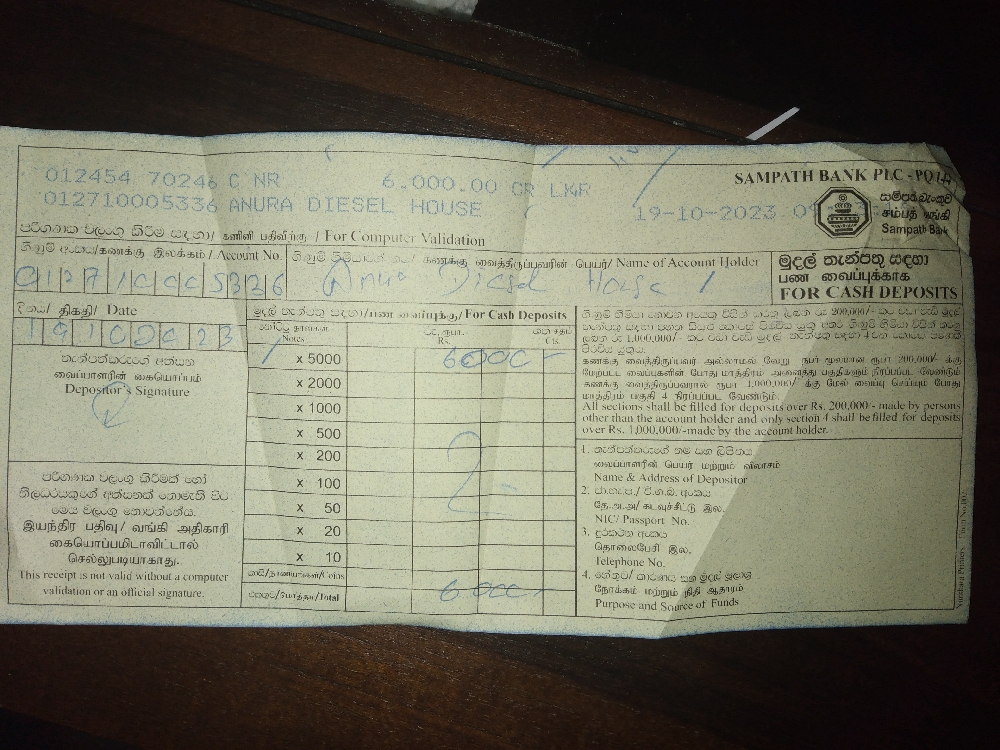 SAMPATH BANK PLC -
012454 70246 C NR 6,000.00 CR LKR
012710005336 ANURA DIESEL HOUSE 19-10-2023
සම්පත් බැංකුව
சம்பத் வங்கி
Sampath Bank
පරිගණක වලංගු කිරීම සඳහා/ கணினி பதிவிற்கு / For Computer Validation
ගිණුම් අංකය/கணக்கு இலக்கம் / Account No.
கணக்கு வைத்திருப்பவரின் பெயர்/ Name of Account Holder
Diesel House
මුදල් තැන්පතු සඳහා
பண வைப்புக்காக
FOR CASH DEPOSITS
දිනය/ திகதி/ Date
මුදල් තැන්පතු සඳහා/பண வைப்புக்கு/For Cash Deposits
Notes
Rs.
Cts.
x 5000 6000 -
x 2000
x 1000
x 500
x 200
x 100
x 50
x 20
x 10
/Coins
/Total 6000 -
තැන්පත්කරුගේ අත්සන
வைப்பாளரின் கையொப்பம்
Depositor's Signature
පරිගණක වලංගු කිරීමක් හෝ
නිලධරයකුගේ අත්සනක් නොමැති විට
මෙය වලංගු නොවන්නේය.
இயந்திர பதிவு/ வங்கி அதிகாரி
கையொப்பமிடாவிட்டால்
செல்லுபடியாகாது.
This receipt is not valid without a computer
validation or an official signature.
கணக்கு வைத்திருப்பவர் அல்லாமல் வேறு நபர் மூலமான ரூபா 200,000/- க்கு
மேற்பட்ட வைப்புகளின் போது மாத்திரம் அனைத்து பகுதிகளும் நிரப்பப்பட வேண்டும்.
கணக்கு வைத்திருப்பவரால் ரூபா 1,000,000/- க்கு மேல் வைப்பு செய்யும் போது
மாத்திரம் பகுதி 4 நிரப்பப்பட வேண்டும்.
All sections shall be filled for deposits over Rs. 200,000/- made by persons
other than the account holder and only section 4 shall be filled for deposits
over Rs. 1,000,000/-made by the account holder.
1. තැන්පත්කරුගේ නම සහ ලිපිනය
வைப்பாளரின் பெயர் மற்றும் விலாசம்
Name & Address of Depositor
2. ජා.හැ.ප./ වි.ග.බ. අංකය
தே.அ.அ/ கடவுச்சீட்டு இல.
NIC/ Passport No.
3. දුරකථන අංකය
தொலைபேசி இல.
Telephone No.
4. හේතුව/ කාරණය සහ මුදල් මූලාශ්‍ර
நோக்கம் மற்றும் நிதி ஆதாரம்
Purpose and Source of Funds